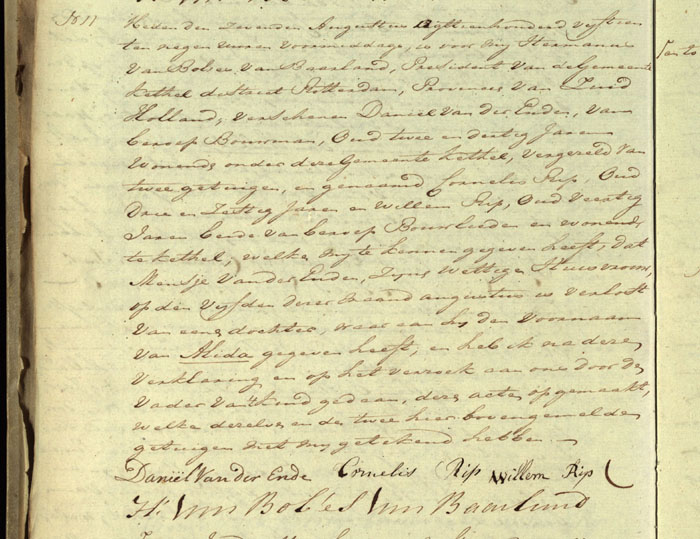 Heden den Zevenden Augustus Agttienhonderd vijftien
ten negen uuren voormiddags, is voor my Hermanus
Van Bolees Van Baarland, President Van de Gemeente
Kethel district Rotterdam, Provincie Van Zuid
Holland, Verschenen Daniel Van der Enden, Van
beroep Bouwman, Oud twee en dertig Jaren
Wonende onder deze Gemeente Kethel, Vergezeld Van
twee getuigen, en genaamd Cornelis Rip, Oud
Drie en Zestig Jaren en Willem Rip, Oud Veertig
Jaren beide van beroep Bouwlieden en wonende
te Kethel, welke my te kennen gegeven heeft, dat
Mensje Van der Enden, Zijne Wettige Huisvrouw,
op den Vyfden dezer maand augustus is Verlost
Van eene dochter, waar aan hy den Voornaam
Van Alida gegeven heeft, en heb ik na deze
Verklaring en op het verzoek aan ons door de
Vader Van 't kind gedaan, deze acte opgemaakt,
welke dezelve en de twee hier bovengemelde
getuigen met my getekend hebben.
Daniël Van der Ende Cornelis Rip Willem Rip
H. Van Bol'es Van Baarland